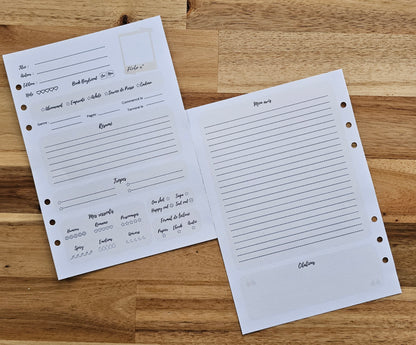 Titre :
Auteur :
Edition :
Note
Book Boyfriend Oui Non
Photo n°
Abonnement Emprunt Achat Service de Presse Cadeau
Genre Pages
Commencé le
Terminé le
Résumé
Tropes
Mes ressentis
Humour Romance Personnages
Spicy Emotions Univers
One Shot Saga
Happy end Sad end
Format de lecture
Papier Ebook Audio
Mon avis
Citations